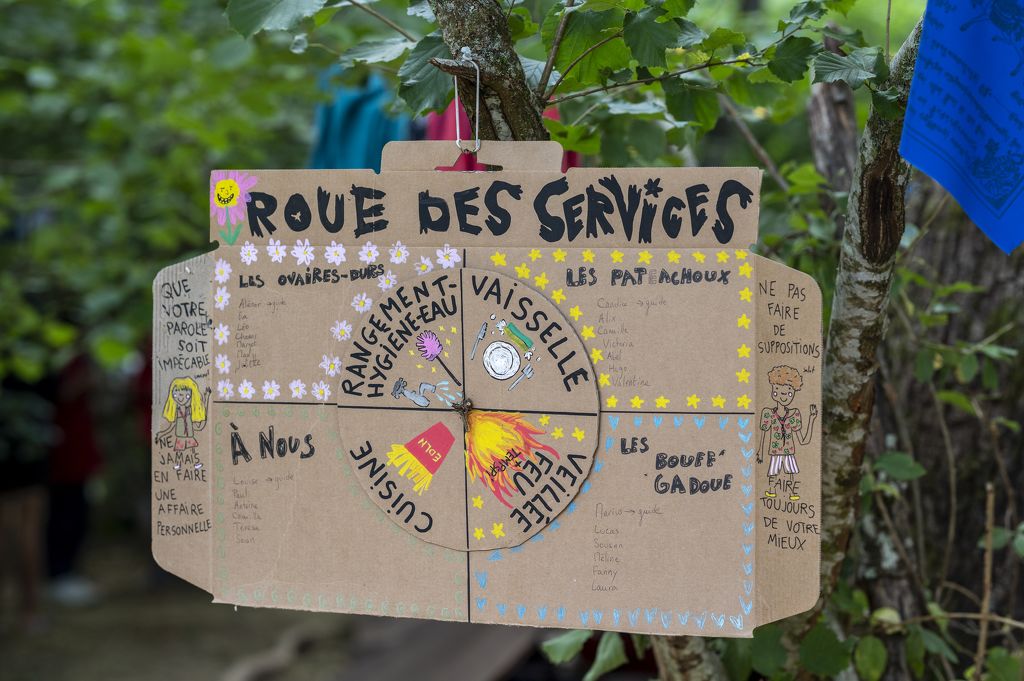 ROUE DES SERVICES
QUE
VOTRE
PAROLE
SOIT
IMPÉCCABLE
NE
JAMAIS
EN FAIRE
UNE
AFFAIRE
PERSONNELLE
LES OVAIRES-DURS
Aliénor → guide
Léo
Margot
Juliette
RANGEMENT-
HYGIÈNE-EAU
VAISSELLE
LES PATEACHOUX
Candice → guide
Alix
Camille
Victoria
Abel
Hugo
Valentine
NE PAS
FAIRE
DE
SUPPOSITIONS
salut
FAIRE
TOUJOURS
DE VOTRE
MIEUX
À NOUS
Louise → guide
Paul
Antoine
Camille
Teresa
Sean
CUISINE
EDLN
VEILLÉE
FEU
TEMPSPI
LES
BOUFF'
GADOUE
Marius → guide
Lucas
Méline
Fanny
Laura